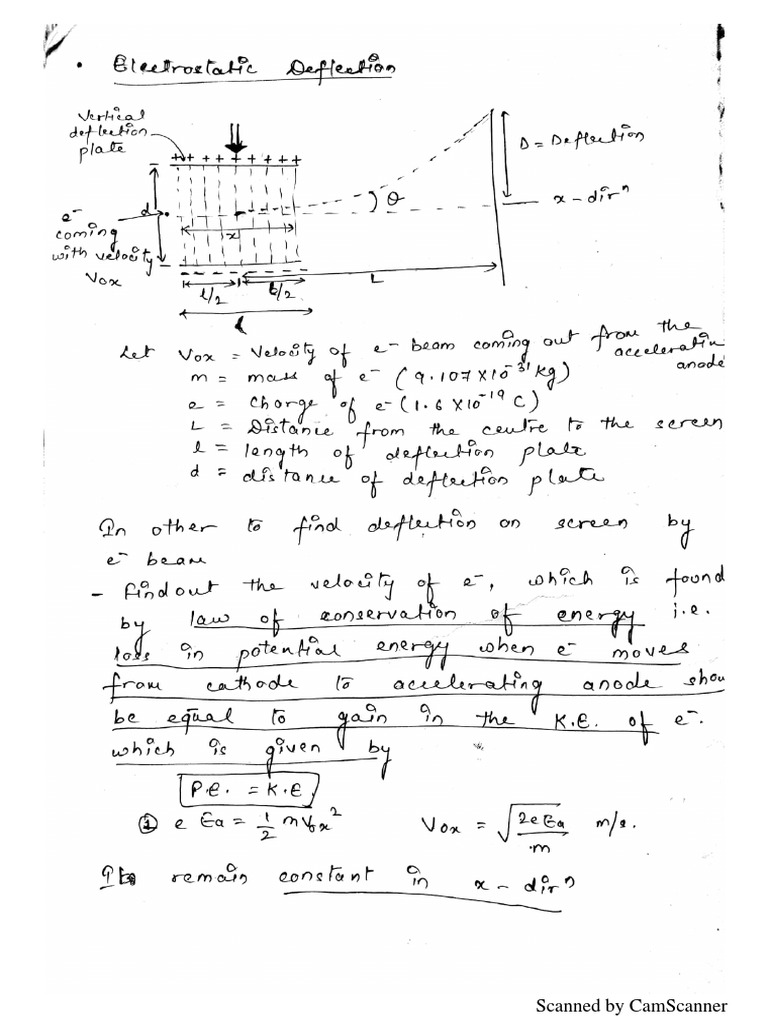 • Electrostatic Deflection
Vertical
deflection
plate
+ + + + + + + + +
D = Deflection
θ
x - dirⁿ
d
e⁻
coming
with velocity
Vox
x
L
l/2
l/2
l
Let Vox = Velocity of e⁻ beam coming out from the
acceleratin
anode
m = mass of e⁻ (9.107 X 10⁻³¹ kg)
e = Charge of e⁻ (1.6 X 10⁻¹⁹ C)
L = Distance from the centre to the screen
l = length of deflection plate
d = distance of deflection plate
In other to find deflection on screen by
e⁻ beam
- Find out the velocity of e⁻, which is found
by law of conservation of energy i.e.
loss in potential energy when e⁻ moves
from cathode to accelerating anode shou
be equal to gain in the K.E. of e⁻.
which is given by
P.E. = K.E
① e Ea = 1/2 m Vox² Vox = √(2e Ea/m) m/s.
It remain constant in x - dirⁿ
Scanned by CamScanner